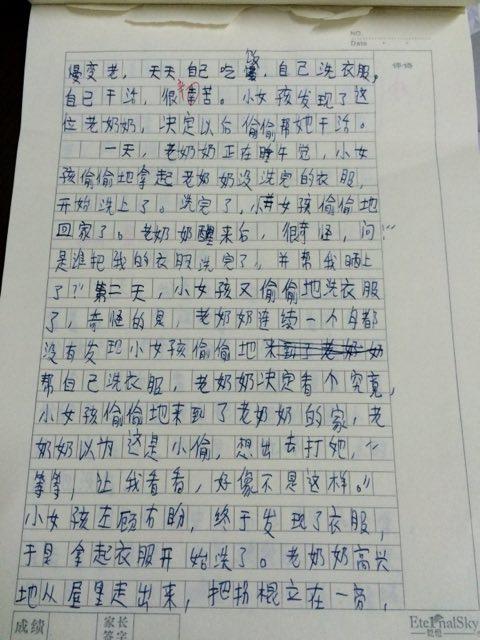 NO.
Date
评语
慢变老，天天自己吃饭，自己洗衣服，
自己干活，很辛苦。小女孩发现了这
位老奶奶，决定以后偷偷帮她干活。
一天，老奶奶正在睡午觉，小女
孩偷偷地拿起老奶奶没洗完的衣服，
开始洗上了。洗完了，小女孩偷偷地
回家了。老奶奶醒来后，很奇怪，问：“
是谁把我的衣服洗完了，并帮我晒上
了？”第二天，小女孩又偷偷地洗衣服
了，奇怪的是，老奶奶连续一个月都
没有发现小女孩偷偷地来到了老奶奶
帮自己洗衣服，老奶奶决定看个究竟，
小女孩偷偷地来到了老奶奶的家，老
奶奶以为这是小偷，想出去打她，“
等等，让我看看，好像不是这样。”
小女孩左顾右盼，终于发现了衣服，
于是拿起衣服开始洗了。老奶奶高兴
地从屋里走出来，把拐棍立在一旁，
成绩
家长
签字
EternalSky